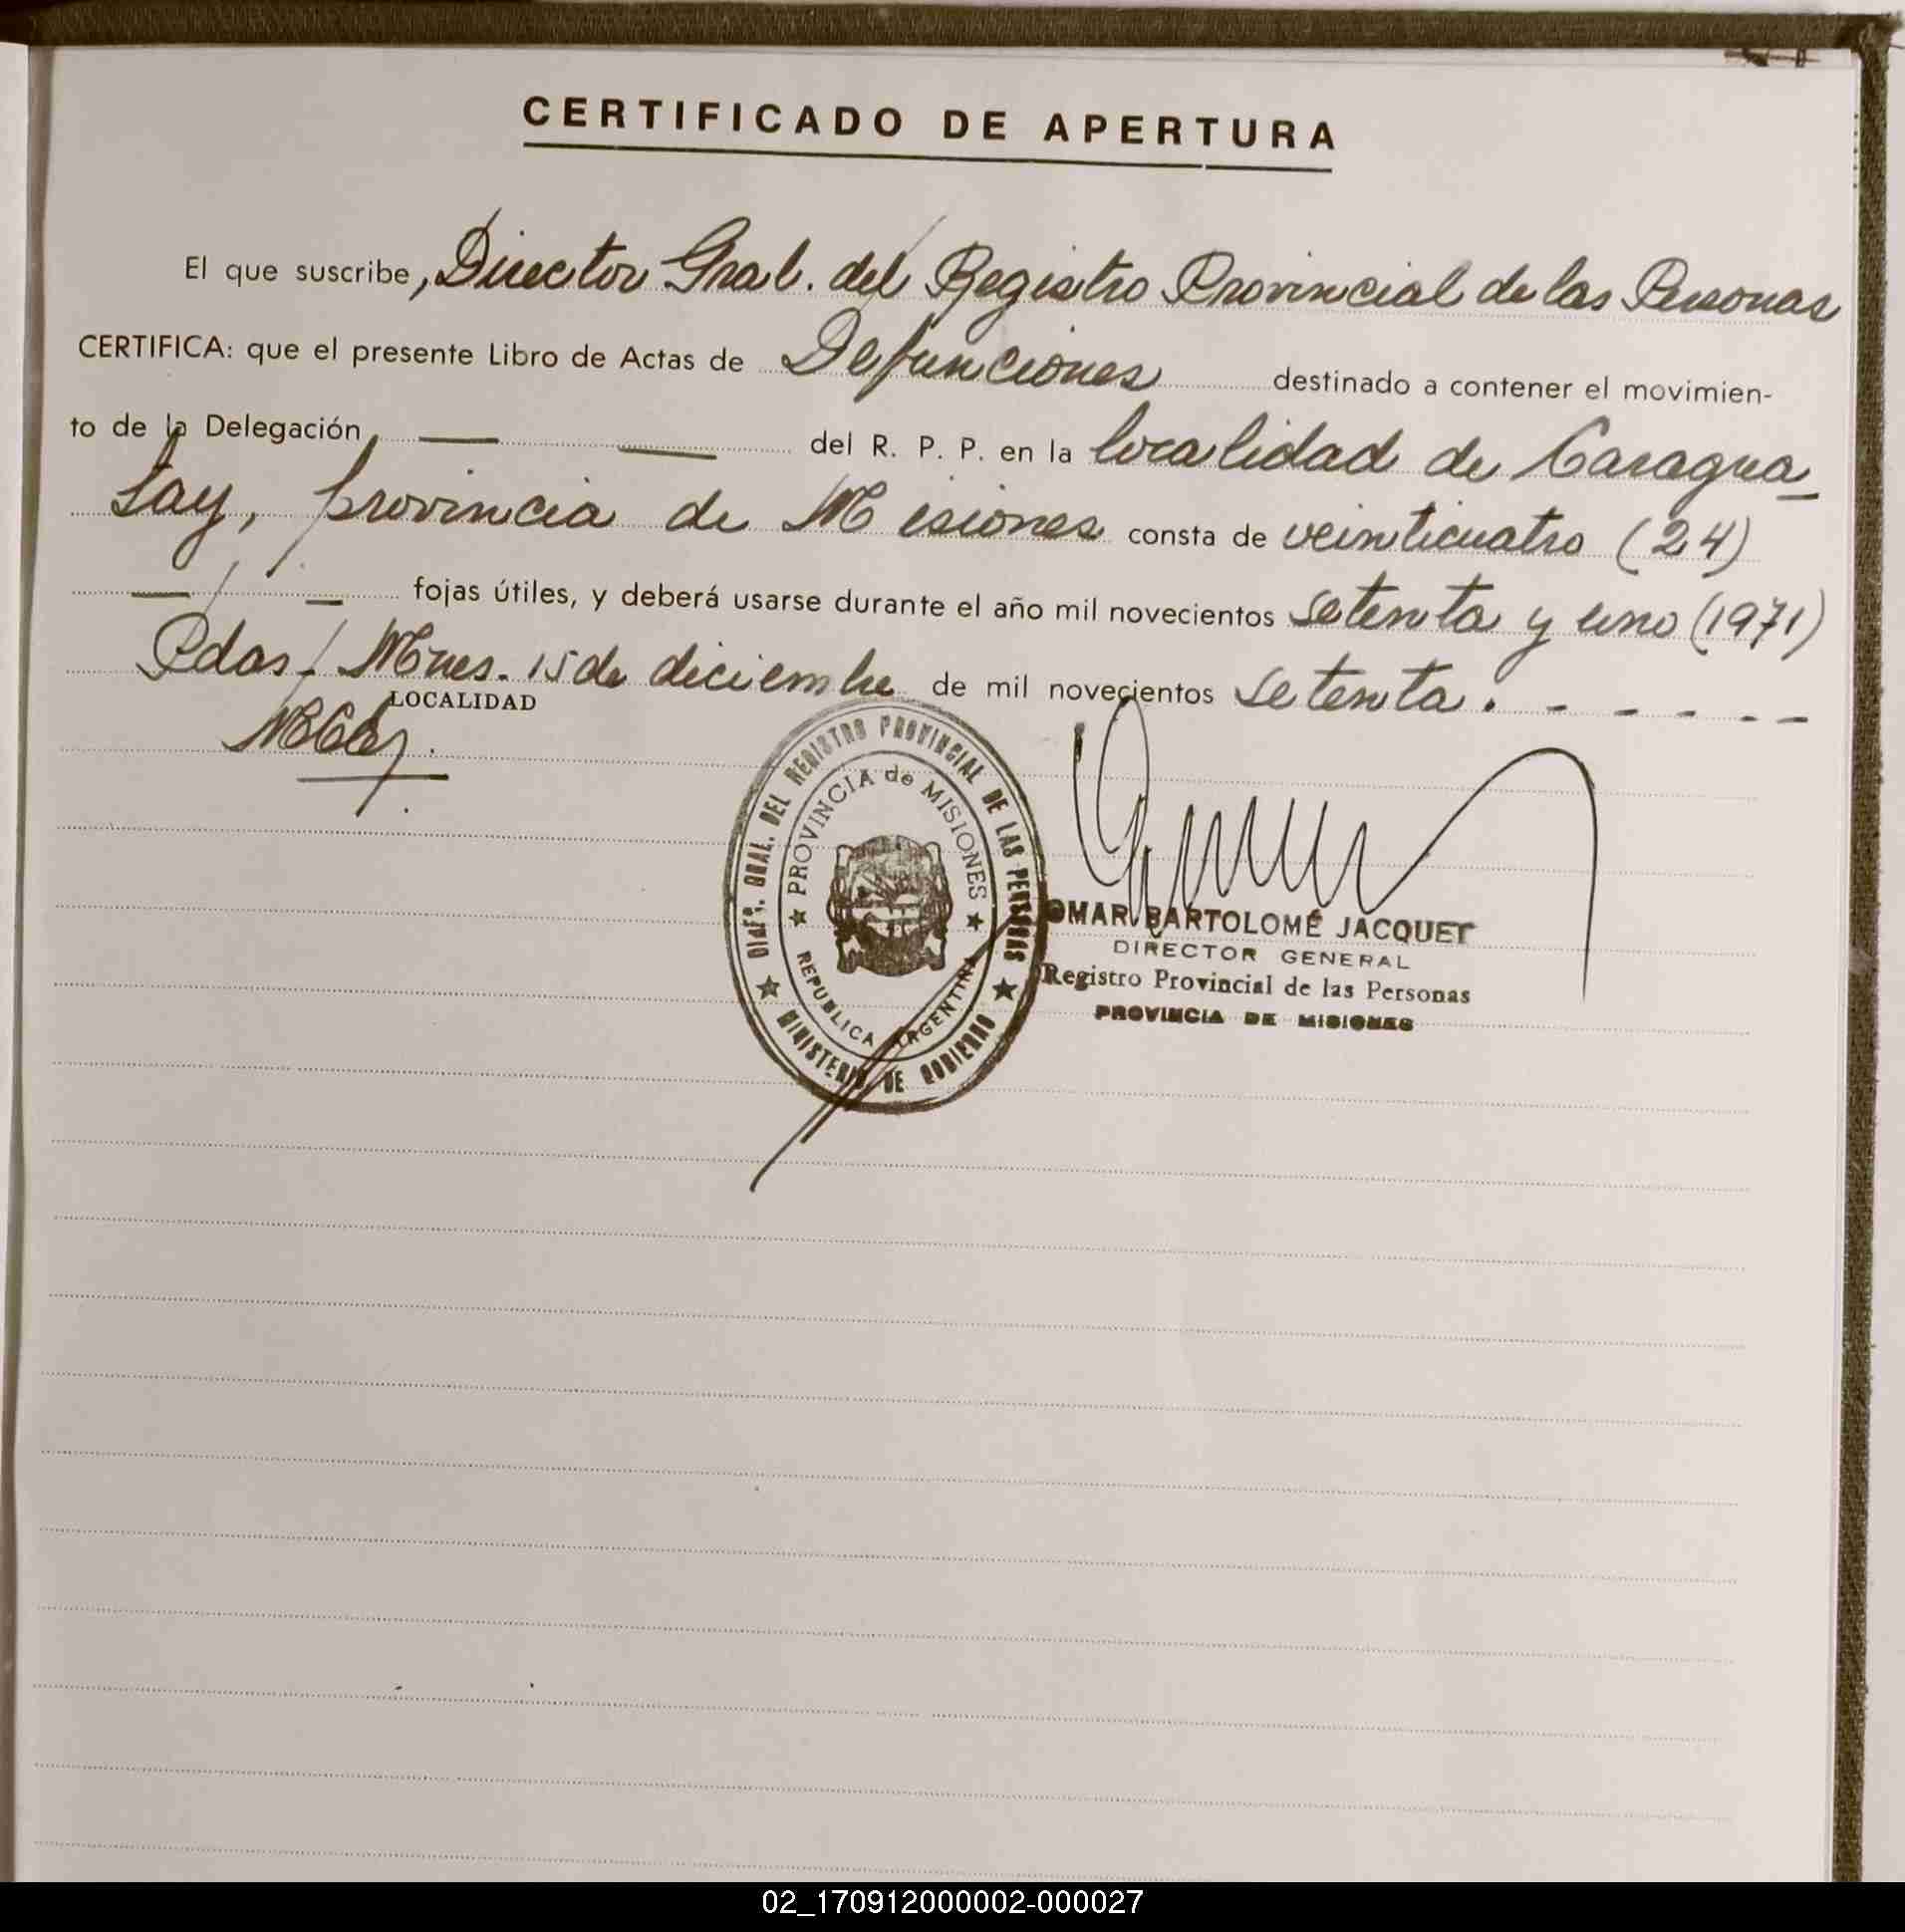 CERTIFICADO DE APERTURA
El que suscribe, Director Gral. del Registro Provincial de las Personas
CERTIFICA: que el presente Libro de Actas de Defunciones destinado a contener el movimien-
to de la Delegación — — del R. P. P. en la localidad de Caragua_
tay, provincia de Misiones consta de veinticuatro (24)
— — fojas útiles, y deberá usarse durante el año mil novecientos setenta y uno (1971)
Pdas, Mnes. 15 de diciembre de mil novecientos setenta. - - - - - -
LOCALIDAD
DIREC. GRAL. DEL REGISTRO PROVINCIAL DE LAS PERSONAS
PROVINCIA de MISIONES
REPUBLICA ARGENTINA
MINISTERIO DE GOBIERNO
OMAR BARTOLOMÉ JACQUET
DIRECTOR GENERAL
Registro Provincial de las Personas
PROVINCIA DE MISIONES
02_170912000002-000027